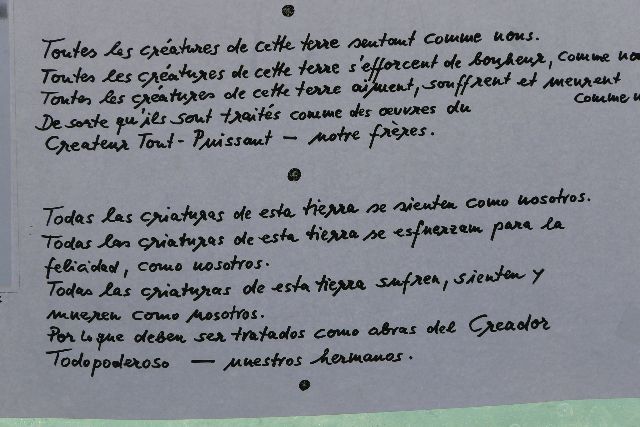 Toutes les créatures de cette terre sentant comme nous.
Toutes les créatures de cette terre s'efforcent de bonheur, comme no
Toutes les créatures de cette terre aiment, souffrent et meurent
comme n
De sorte qu'ils sont traités comme des œuvres du
Createur Tout-Puissant — notre frères.
Todas las criaturas de esta tierra se sienten como nosotros.
Todas las criaturas de esta tierra se esfuerzam para la
felicidad, como nosotros.
Todas las criaturas de esta tierra sufren, sienten y
mueren como nosotros.
Por lo que deben ser tratados como abras del Creador
Todopoderoso — nuestros hermanos.